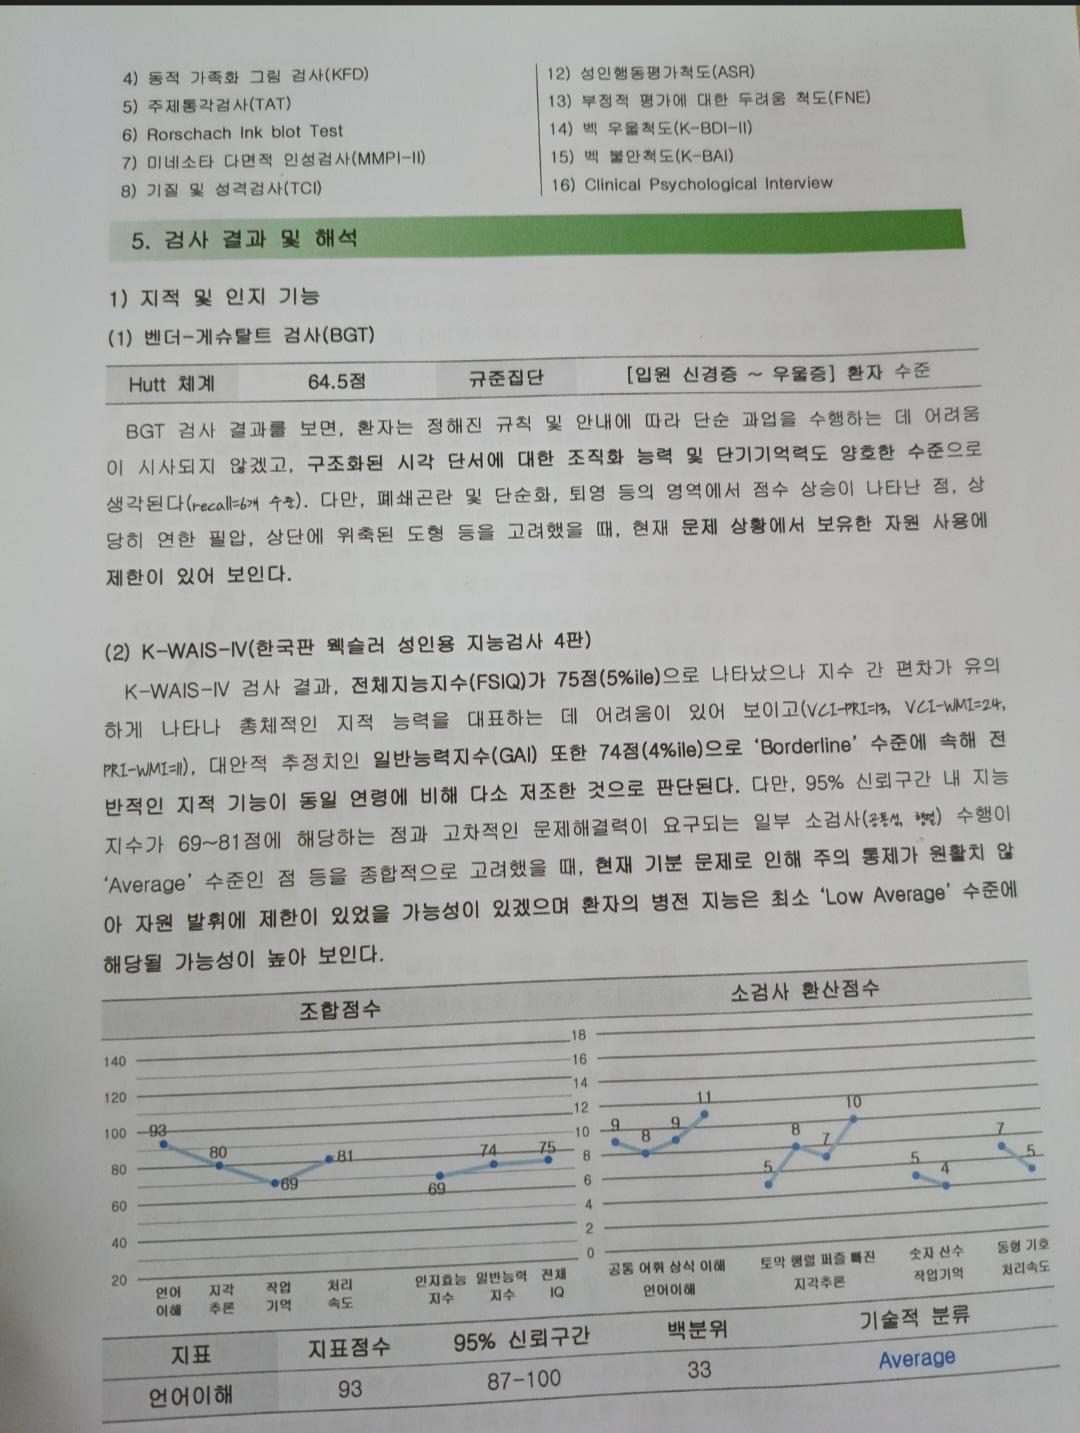 4) 동적 가족화 그림 검사(KFD)
5) 주제통각검사(TAT)
6) Rorschach Ink blot Test
7) 미네소타 다면적 인성검사(MMPI-II)
8) 기질 및 성격검사(TCI)
12) 성인행동평가척도(ASR)
13) 부정적 평가에 대한 두려움 척도(FNE)
14) 벡 우울척도(K-BDI-II)
15) 벡 불안척도(K-BAI)
16) Clinical Psychological Interview
5. 검사 결과 및 해석
1) 지적 및 인지 기능
(1) 벤더-게슈탈트 검사(BGT)
Hutt 체계 64.5점 규준집단 [입원 신경증 ~ 우울증] 환자 수준
BGT 검사 결과를 보면, 환자는 정해진 규칙 및 안내에 따라 단순 과업을 수행하는 데 어려움
이 시사되지 않겠고, 구조화된 시각 단서에 대한 조직화 능력 및 단기기억력도 양호한 수준으로
생각된다(recall=6개 수준). 다만, 폐쇄곤란 및 단순화, 퇴영 등의 영역에서 점수 상승이 나타난 점, 상
당히 연한 필압, 상단에 위축된 도형 등을 고려했을 때, 현재 문제 상황에서 보유한 자원 사용에
제한이 있어 보인다.
(2) K-WAIS-IV(한국판 웩슬러 성인용 지능검사 4판)
K-WAIS-IV 검사 결과, 전체지능지수(FSIQ)가 75점(5%ile)으로 나타났으나 지수 간 편차가 유의
하게 나타나 총체적인 지적 능력을 대표하는 데 어려움이 있어 보이고(VCI-PRI=13, VCI-WMI=24,
PRI-WMI=11), 대안적 추정치인 일반능력지수(GAI) 또한 74점(4%ile)으로 'Borderline' 수준에 속해 전
반적인 지적 기능이 동일 연령에 비해 다소 저조한 것으로 판단된다. 다만, 95% 신뢰구간 내 지능
지수가 69~81점에 해당하는 점과 고차적인 문제해결력이 요구되는 일부 소검사(공통성, 행렬) 수행이
'Average' 수준인 점 등을 종합적으로 고려했을 때, 현재 기분 문제로 인해 주의 통제가 원활치 않
아 자원 발휘에 제한이 있었을 가능성이 있겠으며 환자의 병전 지능은 최소 'Low Average' 수준에
해당될 가능성이 높아 보인다.
조합점수
140
120
100
80
60
40
20
93 80 69 81 69 74 75
언어 이해
지각 추론
작업 기억
처리 속도
인지효능 지수
일반능력 지수
전체 IQ
소검사 환산점수
18
16
14
12
10
8
6
4
2
0
9 8 9 11 5 8 7 10 5 4 7 5
공통 어휘 상식 이해
언어이해
토막 행렬 퍼즐 빠진
지각추론
숫자 산수
작업기억
동형 기호
처리속도
지표 지표점수 95% 신뢰구간 백분위 기술적 분류
언어이해 93 87-100 33 Average